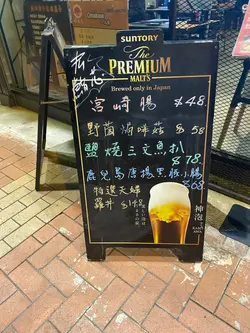 SUNTORY
The
PREMIUM
MALT'S
Brewed only in Japan
宮崎腸 $48
野菌焗味菇 $58
鹽燒三文魚扒
$78
鹿兒島唐揚黑豚小腸
$68
特選天婦
羅丼 $148
神泡